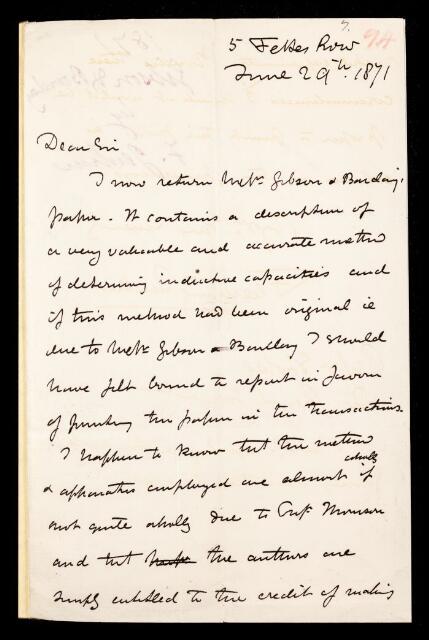 94
5 Fettes Row
June 29th. 1871
Dear Sir
I now return Messrs Gibson & Barclay's
paper. It contains a description of
a very valuable and accurate method
of determining inductive capacities and
if this method had been original ie
due to Messrs Gibson & Barclay I should
have felt bound to report in favour
of printing the paper in the transactions.
I happen to know that the method
& apparatus employed are almost wholly if
not quite wholly due to Prof. Thomson
and that the authors are
simply entitled to the credit of making